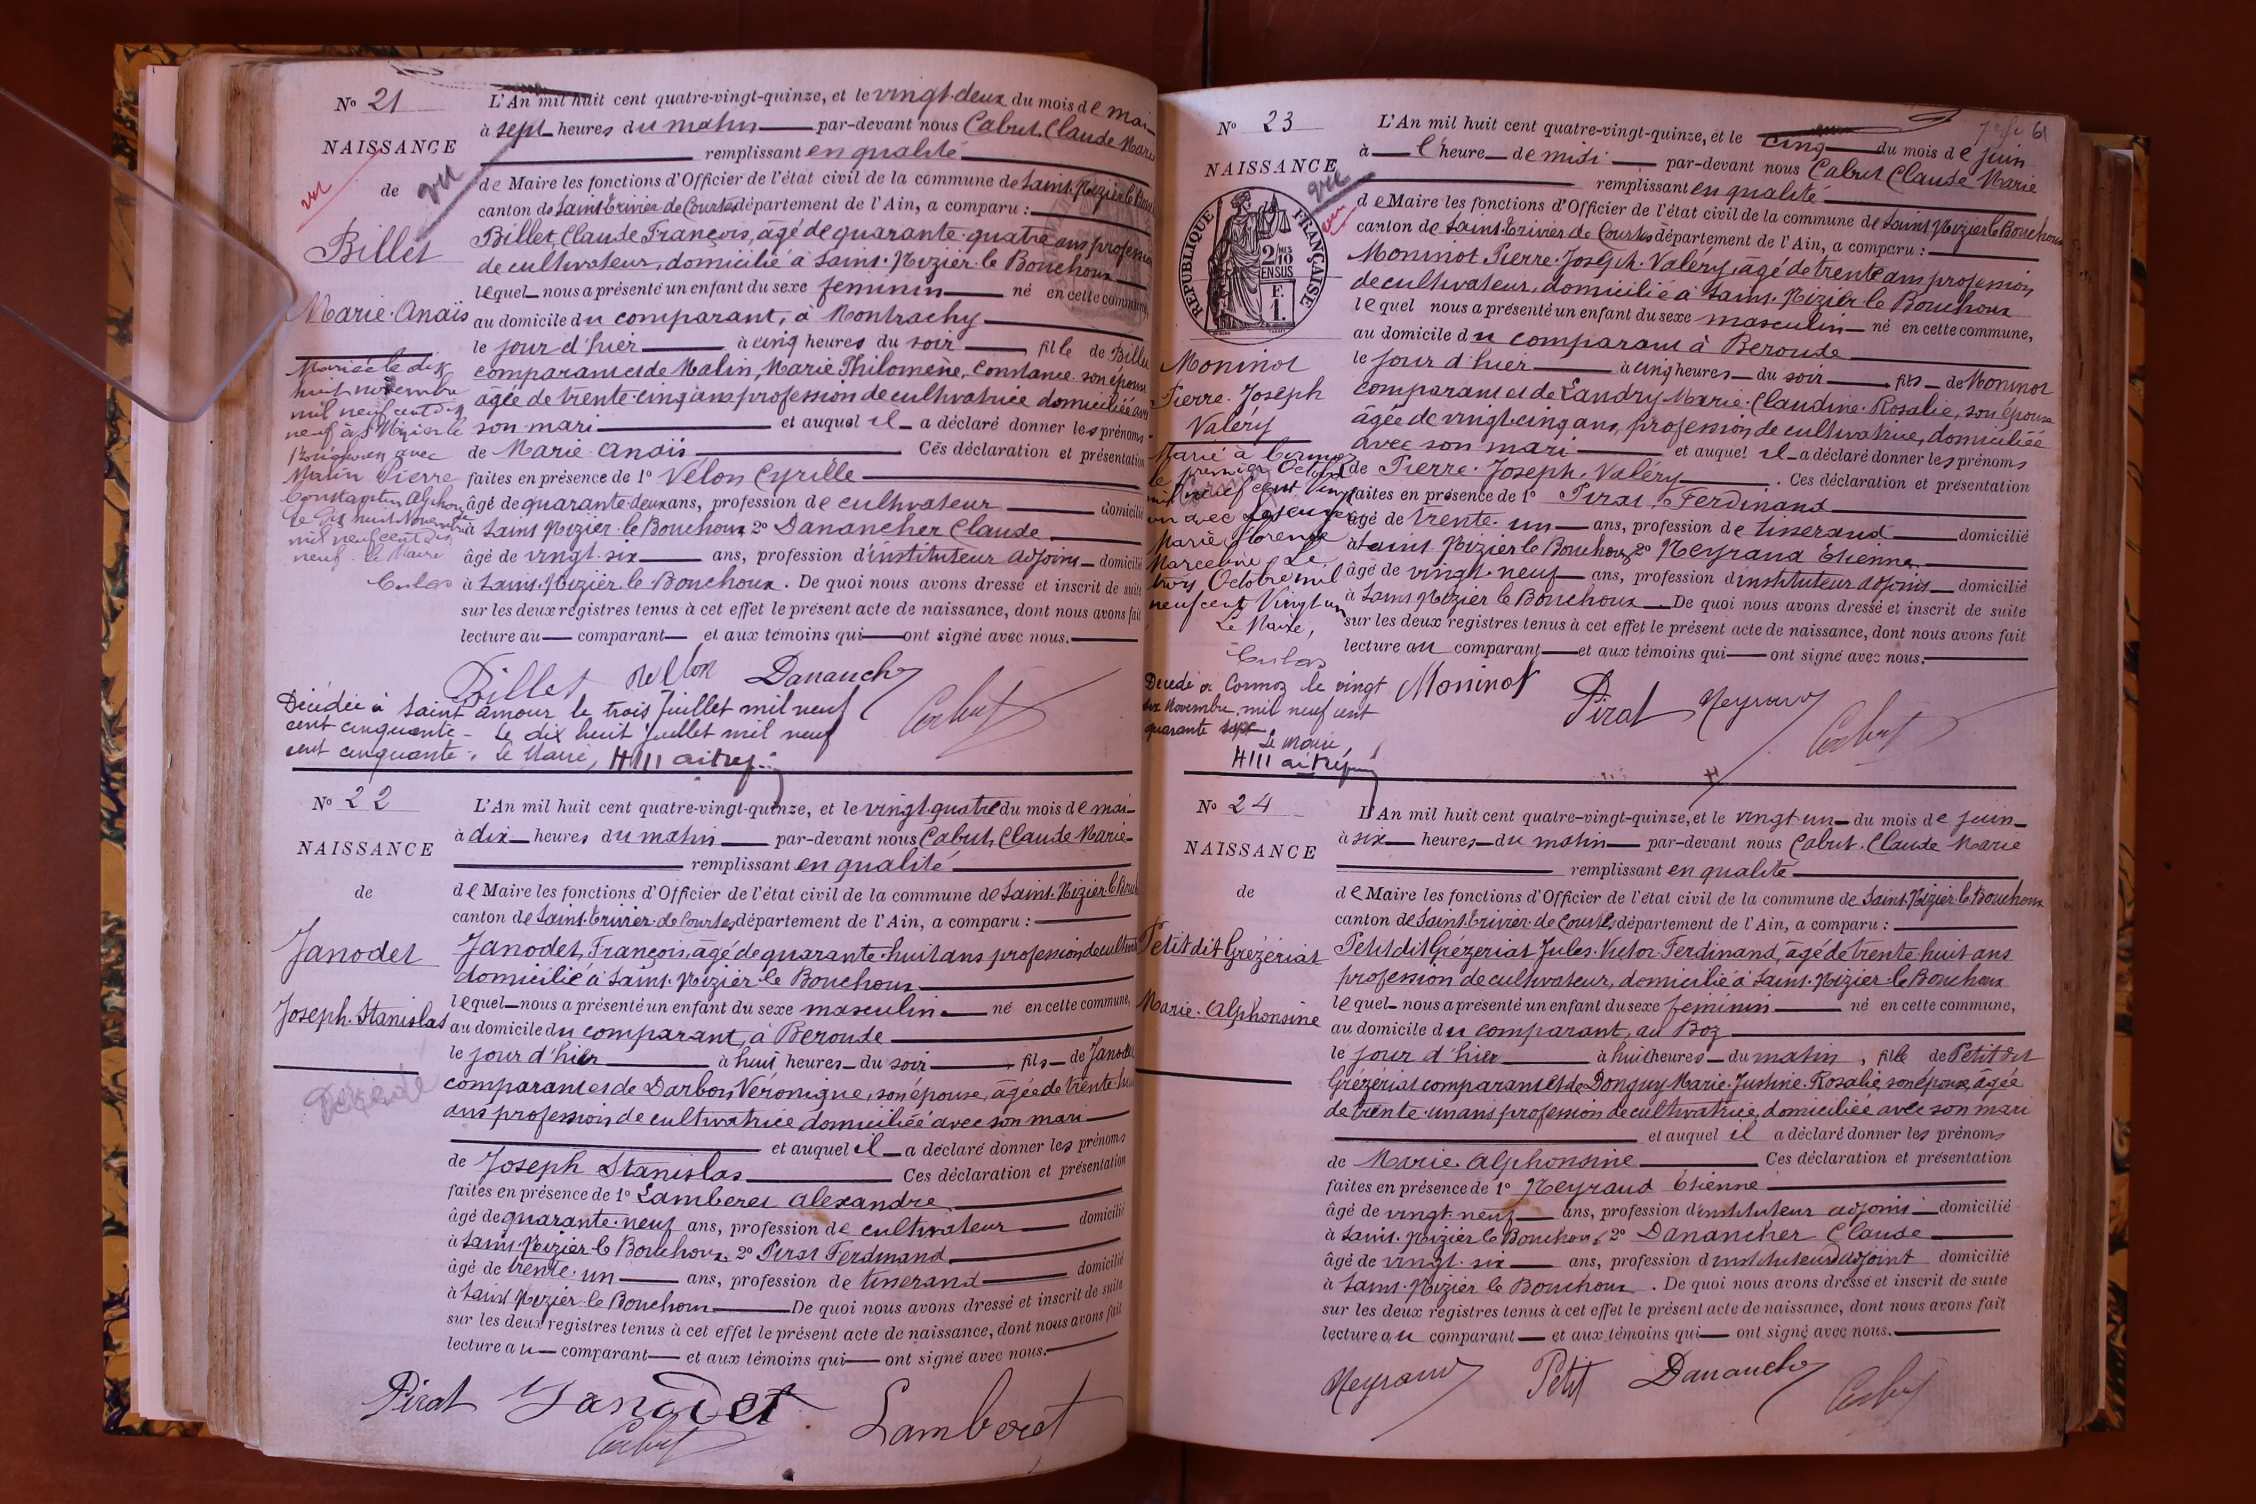 N° 21
NAISSANCE
vu
de
vu
Billet
Marie-Anaïs
Mariée le dix
huit novembre
mil neuf cent dix
neuf à St Nizier le
Bouchoux avec
Malin Pierre
Constantin Alphon
le dix huit Novembre
mil neuf cent dix
neuf. Le Maire
L'An mil huit cent quatre-vingt-quinze, et le vingt-deux du mois de mai
à sept heures du matin par-devant nous Cabut, Claude Marie
remplissant en qualité
de Maire les fonctions d'Officier de l'état civil de la commune de Saint-Nizier le Bouchoux
canton de Saint-Trivier de Courtes département de l'Ain, a comparu :
Billet, Claude François, âgé de quarante-quatre ans profession
de cultivateur, domicilié à Saint-Nizier-le Bouchoux
lequel nous a présenté un enfant du sexe feminin né en cette commune,
au domicile du comparant, à Montrachy
le jour d'hier à cinq heures du soir, fille de Billet
comparant et de Malin, Marie Philomène, Constance son épouse
âgée de trente-cinq ans profession de cultivatrice domiciliée avec
son mari et auquel il a déclaré donner les prénoms
de Marie-Anaïs Ces déclaration et présentation
faites en présence de 1° Velon Cyrille
âgé de quarante deux ans, profession de cultivateur domicilié
à Saint Nizier-le Bouchoux 2° Danancher Claude
âgé de vingt-six ans, profession d'instituteur adjoint domicilié
à Saint-Nizier-le Bouchoux. De quoi nous avons dressé et inscrit de suite
sur les deux registres tenus à cet effet le présent acte de naissance, dont nous avons fait
lecture au comparant et aux témoins qui ont signé avec nous.
Billet Danancher
Cabut
Décédée à Saint Amour le trois Juillet mil neuf
cent cinquante - Le dix huit Juillet mil neuf
cent cinquante. Le Maire,
N° 22
NAISSANCE
de
Janodet
Joseph-Stanislas
Décédé
L'An mil huit cent quatre-vingt-quinze, et le vingt-quatre du mois de mai
à dix heures du matin par-devant nous Cabut, Claude Marie
remplissant en qualité
de Maire les fonctions d'Officier de l'état civil de la commune de Saint-Nizier-le Bouch
canton de Saint-Trivier-de Courtes département de l'Ain, a comparu :
Janodet, François, âgé de quarante-huit ans profession de cultiva
domicilié à Saint-Nizier-le Bouchoux
lequel nous a présenté un enfant du sexe masculin né en cette commune,
au domicile du comparant, à Beroude
le jour d'hier à huit heures du soir, fils de Janodet
comparant et de Darbon, Véronique, son épouse, âgée de trente-hu
ans profession de cultivatrice, domiciliée avec son mari
et auquel il a déclaré donner les prénoms
de Joseph Stanislas Ces déclaration et présentation
faites en présence de 1° Lamberet Alexandre
âgé de quarante-neuf ans, profession de cultivateur domicilié
à Saint-Nizier-le Bouchoux 2° Pirat Ferdinand
âgé de trente-un ans, profession de tisserand domicilié
à Saint Nizier-le Bouchoux De quoi nous avons dressé et inscrit de suite
sur les deux registres tenus à cet effet le présent acte de naissance, dont nous avons fait
lecture au comparant et aux témoins qui ont signé avec nous.
Pirat Janodet Lamberet
Cabut
61
N° 23
NAISSANCE
vu
vu
RÉPUBLIQUE FRANÇAISE
2/10 EN SUS
F. 1.
Moninot
Pierre-Joseph
Valéry
Marié à Cormoz
le premier Octobre
mil neuf cent vingt
un avec
Marie Florence
Marceline. Le
trois Octobre mil
neuf cent Vingt un
Le Maire,
Décédé à Cormoz le vingt
six Novembre mil neuf cent
quarante sept
Le Maire,
L'An mil huit cent quatre-vingt-quinze, et le cinq du mois de juin
à l'heure de midi par-devant nous Cabut Claude Marie
remplissant en qualité
de Maire les fonctions d'Officier de l'état civil de la commune de Saint Nizier le Bouchoux
canton de Saint-Trivier de Courtes département de l'Ain, a comparu :
Moninot Pierre-Joseph-Valéry, âgé de trente ans profession
de cultivateur, domicilié à Saint-Nizier le Bouchoux
lequel nous a présenté un enfant du sexe masculin né en cette commune,
au domicile du comparant à Beroude
le jour d'hier à cinq heures du soir, fils de Moninot
comparant et de Landry Marie-Claudine-Rosalie, son épouse
âgée de vingt-cinq ans, profession de cultivatrice, domiciliée
avec son mari et auquel il a déclaré donner les prénoms
de Pierre-Joseph-Valéry. Ces déclaration et présentation
faites en présence de 1° Pirat, Ferdinand
âgé de trente-un ans, profession de tisserand domicilié
à Saint Nizier le Bouchoux 2° Neyraud Etienne
âgé de vingt-neuf ans, profession d'instituteur adjoint domicilié
à Saint Nizier le Bouchoux De quoi nous avons dressé et inscrit de suite
sur les deux registres tenus à cet effet le présent acte de naissance, dont nous avons fait
lecture au comparant et aux témoins qui ont signé avec nous.
Moninot Pirat Neyraud
Cabut
N° 24
NAISSANCE
de
Petit dit Grézériat
Marie-Alphonsine
L'An mil huit cent quatre-vingt-quinze, et le vingt-un du mois de juin
à six heures du matin par-devant nous Cabut-Claude Marie
remplissant en qualité
de Maire les fonctions d'Officier de l'état civil de la commune de Saint-Nizier-le Bouchoux
canton de Saint-Trivier-de Courtes, département de l'Ain, a comparu :
Petit dit Grézeriat Jules-Victor Ferdinand, âgé de trente-huit ans
profession de cultivateur, domicilié à Saint-Nizier-le Bouchoux
lequel nous a présenté un enfant du sexe feminin né en cette commune,
au domicile du comparant, au Boz
le jour d'hier à huit heures du matin, fille de Petit dit
Grézériat comparant et de Donguy Marie-Justine-Rosalie, son épouse, âgée
de trente-un ans profession de cultivatrice, domiciliée avec son mari
et auquel il a déclaré donner les prénoms
de Marie-Alphonsine Ces déclaration et présentation
faites en présence de 1° Neyraud Etienne
âgé de vingt-neuf ans, profession d'instituteur adjoint domicilié
à Saint-Nizier le Bouchoux, 2° Danancher Claude
âgé de vingt-six ans, profession d'instituteur adjoint domicilié
à Saint-Nizier le Bouchoux. De quoi nous avons dressé et inscrit de suite
sur les deux registres tenus à cet effet le présent acte de naissance, dont nous avons fait
lecture au comparant et aux témoins qui ont signé avec nous.
Neyraud Petit Danancher
Cabut